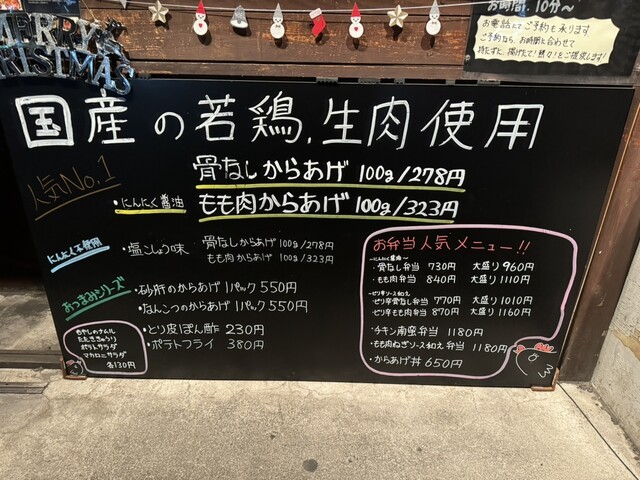 MERRY
CHRISTMAS
お時間.10分〜
お電話にてご予約も承ります
ご予約なら、お時間に合わせて
国産の若鶏,生肉使用
人気No.1
・にんにく醤油
骨なしからあげ 100g/278円
もも肉からあげ 100g/323円
にんにく不使用
・塩こしょう味
骨なしからあげ 100g/278円
もも肉からあげ 100g/323円
おつまみシリーズ
・砂肝のからあげ 1パック 550円
・なんこつのからあげ 1パック 550円
・とり皮ぽん酢 230円
・ポテトフライ 380円
もやしのナムル
たたききゅうり
ポテトサラダ
マカロニサラダ
各130円
お弁当人気メニュー!!
〜にんにく醤油〜
・骨なし弁当 730円 大盛り960円
・もも肉弁当 840円 大盛り1110円
・ピリ辛ソース和え
・ピリ辛骨なし弁当 770円 大盛り1010円
・ピリ辛もも肉弁当 870円 大盛り1160円
・チキン南蛮弁当 1180円
・もも肉ねぎソース和え弁当 1180円
・からあげ丼 650円